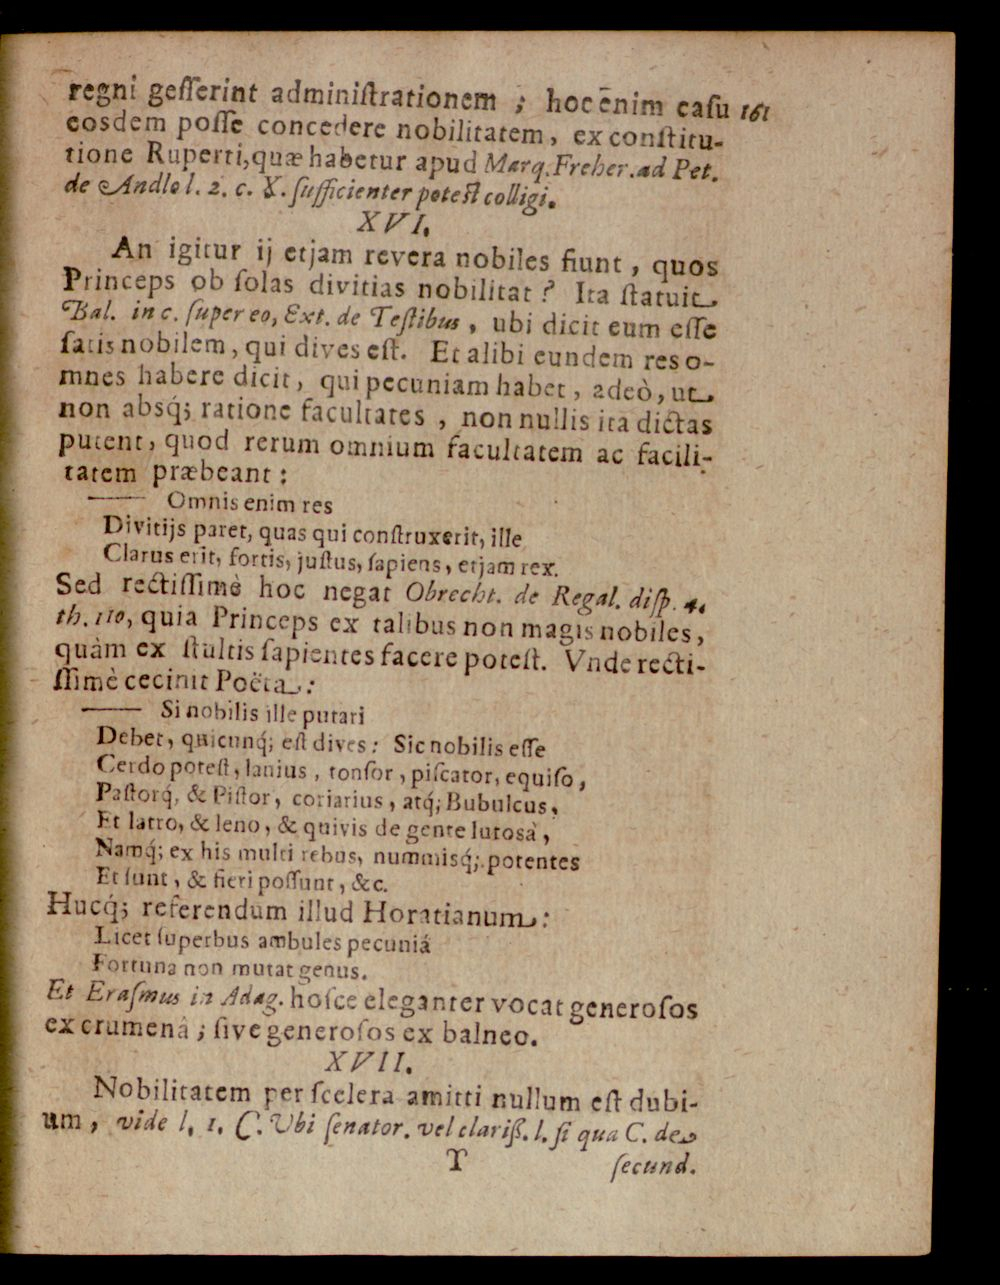 regni geſſerint adminiſtrationem ; hoc enim caſu 161
eosdem poſſe concedere nobilitatem, ex conſtitu-
tione Ruperti, quæ habetur apud Marq. Freher. ad Pet.
de Andlo l. 2. c. X. ſufficienter poteſt colligi.
XVI.
An igitur ij etjam revera nobiles fiunt , quos
Princeps ob ſolas divitias nobilitat ? Ita ſtatuit
Bal. in c. ſuper eo, Ext. de Teſtibus , ubi dicit eum eſſe
ſatis nobilem , qui dives eſt. Et alibi eundem res o-
mnes habere dicit , qui pecuniam habet , adeò , ut
non absq́; ratione facultates , non nullis ita dictas
putent , quod rerum omnium facultatem ac facili-
tatem præbeant :
—— Omnis enim res
Divitijs paret, quas qui conſtruxerit, ille
Clarus erit, fortis, juſtus, ſapiens , etjam rex.
Sed rectiſſimè hoc negat Obrecht. de Regal. diſp. 4.
th. 110, quia Princeps ex talibus non magis nobiles ,
quàm ex ſtultis ſapientes facere poteſt. Vnde recti-
ſſimè cecinit Poëta :
—— Si nobilis ille putari
Debet , quicunq́; eſt dives : Sic nobilis eſſe
Cerdo poteſt , lanius , tonſor , piſcator, equiſo ,
Paſtorq́, & Piſtor , coriarius , atq́; Bubulcus ,
Et latro, & leno , & quivis de gente lutosà ,
Namq́; ex his multi rebus, nummisq́; potentes
Et ſunt , & fieri poſſunt , &c.
Hucq́; referendum illud Horatianum :
Licet ſuperbus ambules pecuniá
Fortuna non mutat genus.
Et Eraſmus in Adag. hoſce eleganter vocat generoſos
ex crumenâ ; ſive generoſos ex balneo.
XVII.
Nobilitatem per ſcelera amitti nullum eſt dubi-
um , vide l. 1. C. Ubi ſenator. vel clariß. l. ſi qua C. de
T ſecund.